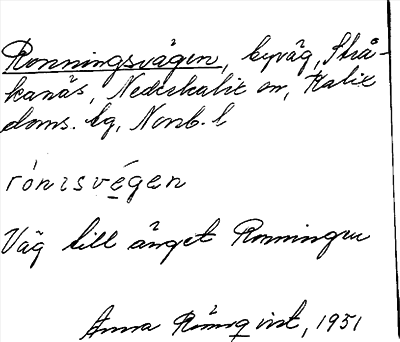 Ronningsvägen, byväg, Strå-
kanäs, Nederkalix sn, Kalix
doms. tg, Nonb. l
rónisvégen
Väg till änget Ronningen
Anna Rönnqvist, 1951